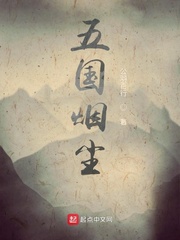 五国烟尘
著
起点中文网